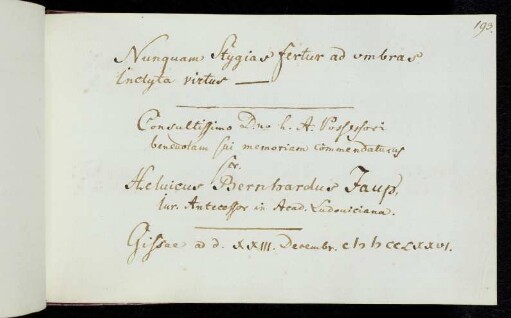 193.
Nunquam Stygias fertur ad vmbras
Inclyta virtus —
Consultissimo Dno h. A. Possessori
beneuolam sui memoriam commendaturus
scr.
Heluicus Bernhardus Jaup,
Iur. Antecessor in Acad. Ludouiciana.
Gissae a d. XXIII. Decembr. cIↄIↄccLXXVI.